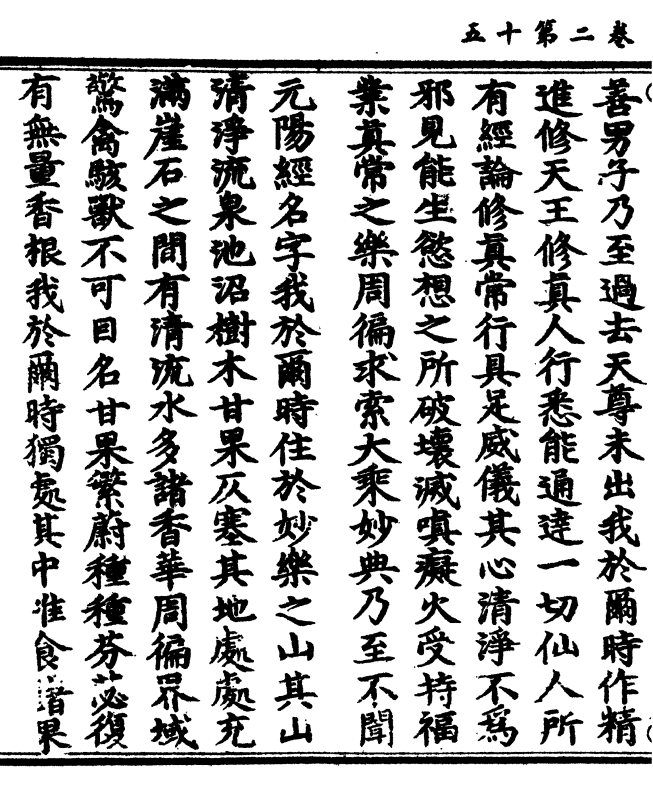 卷二第十五
善男子乃至過去天尊未出我於爾時作精
進修天王修真人行悉能通達一切仙人所
有經論修真常行具足威儀其心清淨不為
邪見能生慾想之所破壞滅嗔癡火受持福
業真常之樂周徧求索大乘妙典乃至不聞
元陽經名字我於爾時住於妙樂之山其山
清淨流泉池沼樹木甘果仄塞其地處處充
滿崖石之間有清流水多諸香華周徧界域
驚禽駭獸不可目名甘果繁蔚種種芬苾復
有無量香根我於爾時獨處其中准食諸果